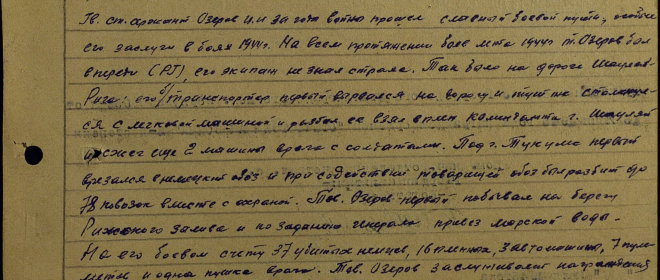 Гв. ст. сержант Озеров И.И за годы войны прошел славный боевой путь, особые
его заслуги в боях 1944г. На всем протяжении боев лета 1944г т. Озеров был
впереди (РД), его экипаж не знал страха. Так было на дороге Шауляй-
Рига: его б/транспортер первый ворвался на дорогу и тут же столкнул-
ся с легковой машиной и разбил ее взял в плен коменданта г. Шауляй
и сжег еще 2 машины врага с солдатами. Под г. Тукумс первый
врезался в немецкий обоз и при содействии товарищей обоз был разбит до
78 повозок вместе с охраной. Тов. Озеров первый побывал на берегу
Рижского залива и по заданию генерала привез морской воды.
На его боевом счету 37 убитых немцев, 16 пленных, 3 автомашины, 7 пуле-
метов и одна пушка врага. Тов. Озеров заслуживает награждения